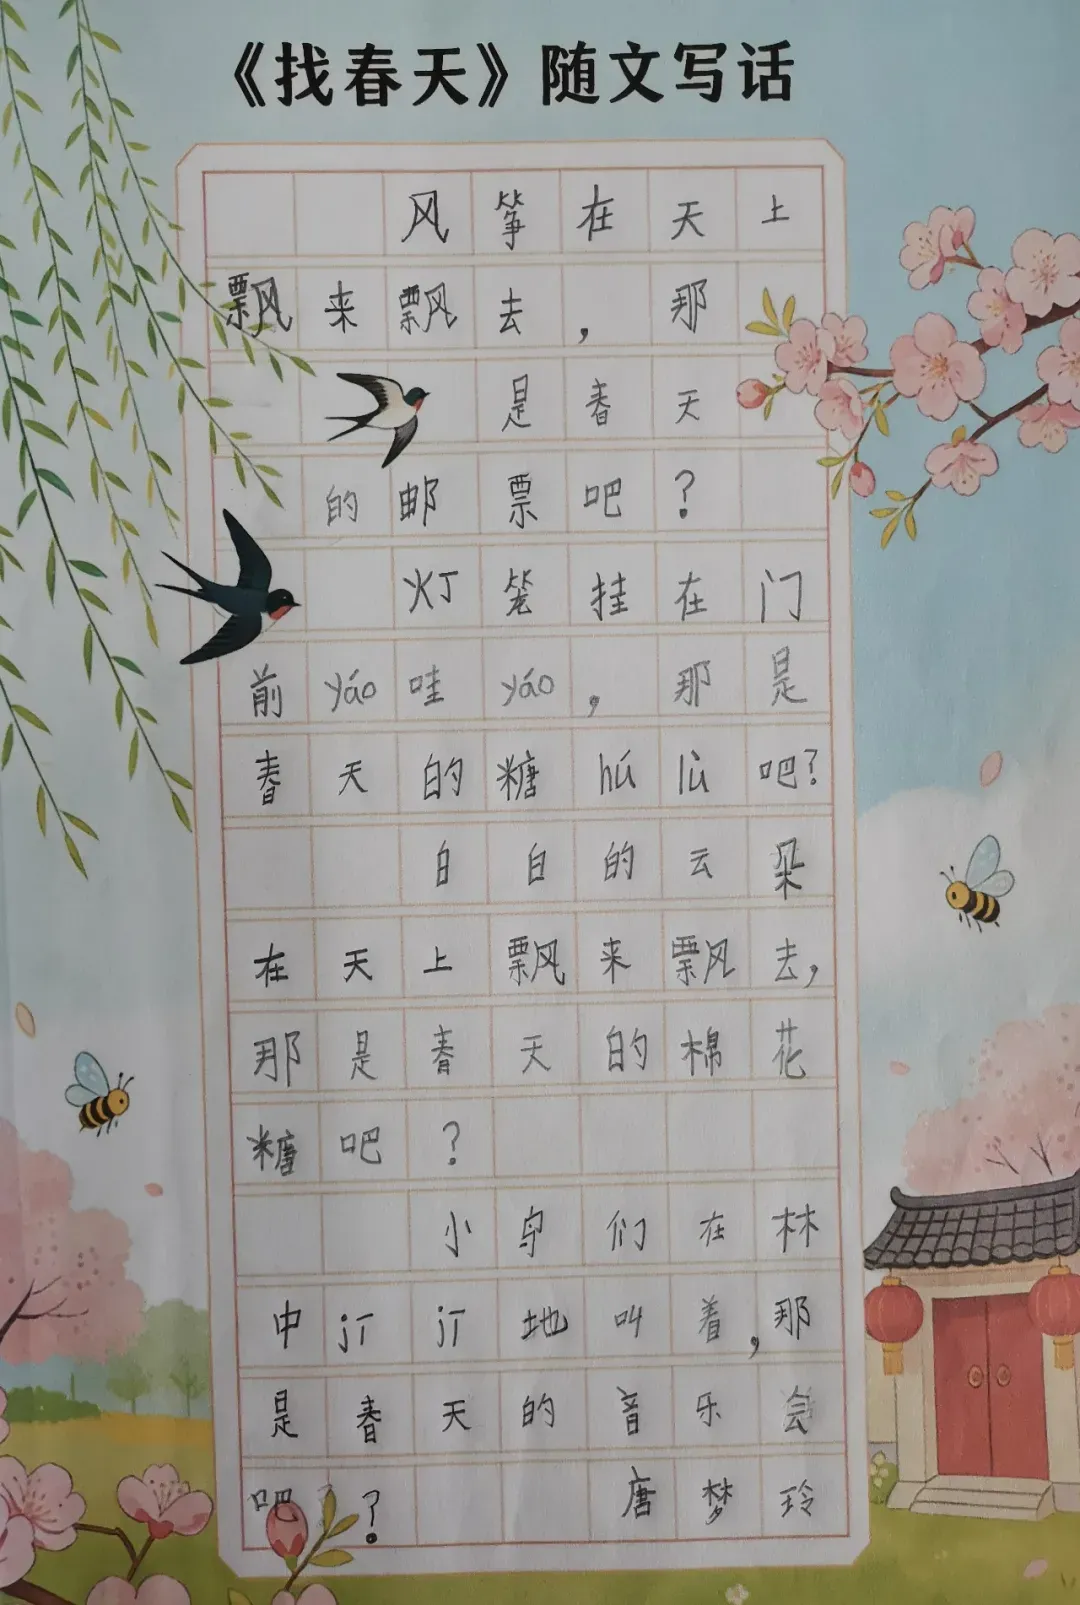 《找春天》随文写话
风筝在天上
飘来飘去，那
是春天
的邮票吧？
灯笼挂在门
前yáo哇yáo，那是
春天的糖hú lù吧？
白白的云朵
在天上飘来飘去，
那是春天的棉花
糖吧？
小鸟们在林
中jī jī地叫着，那
是春天的音乐会
吧？ 唐梦玲